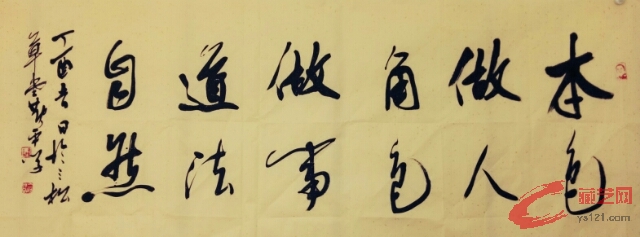 本色
做人
角色
做事
道法
自然
丁酉吉日於三松
草堂
藏艺网
ys121.com